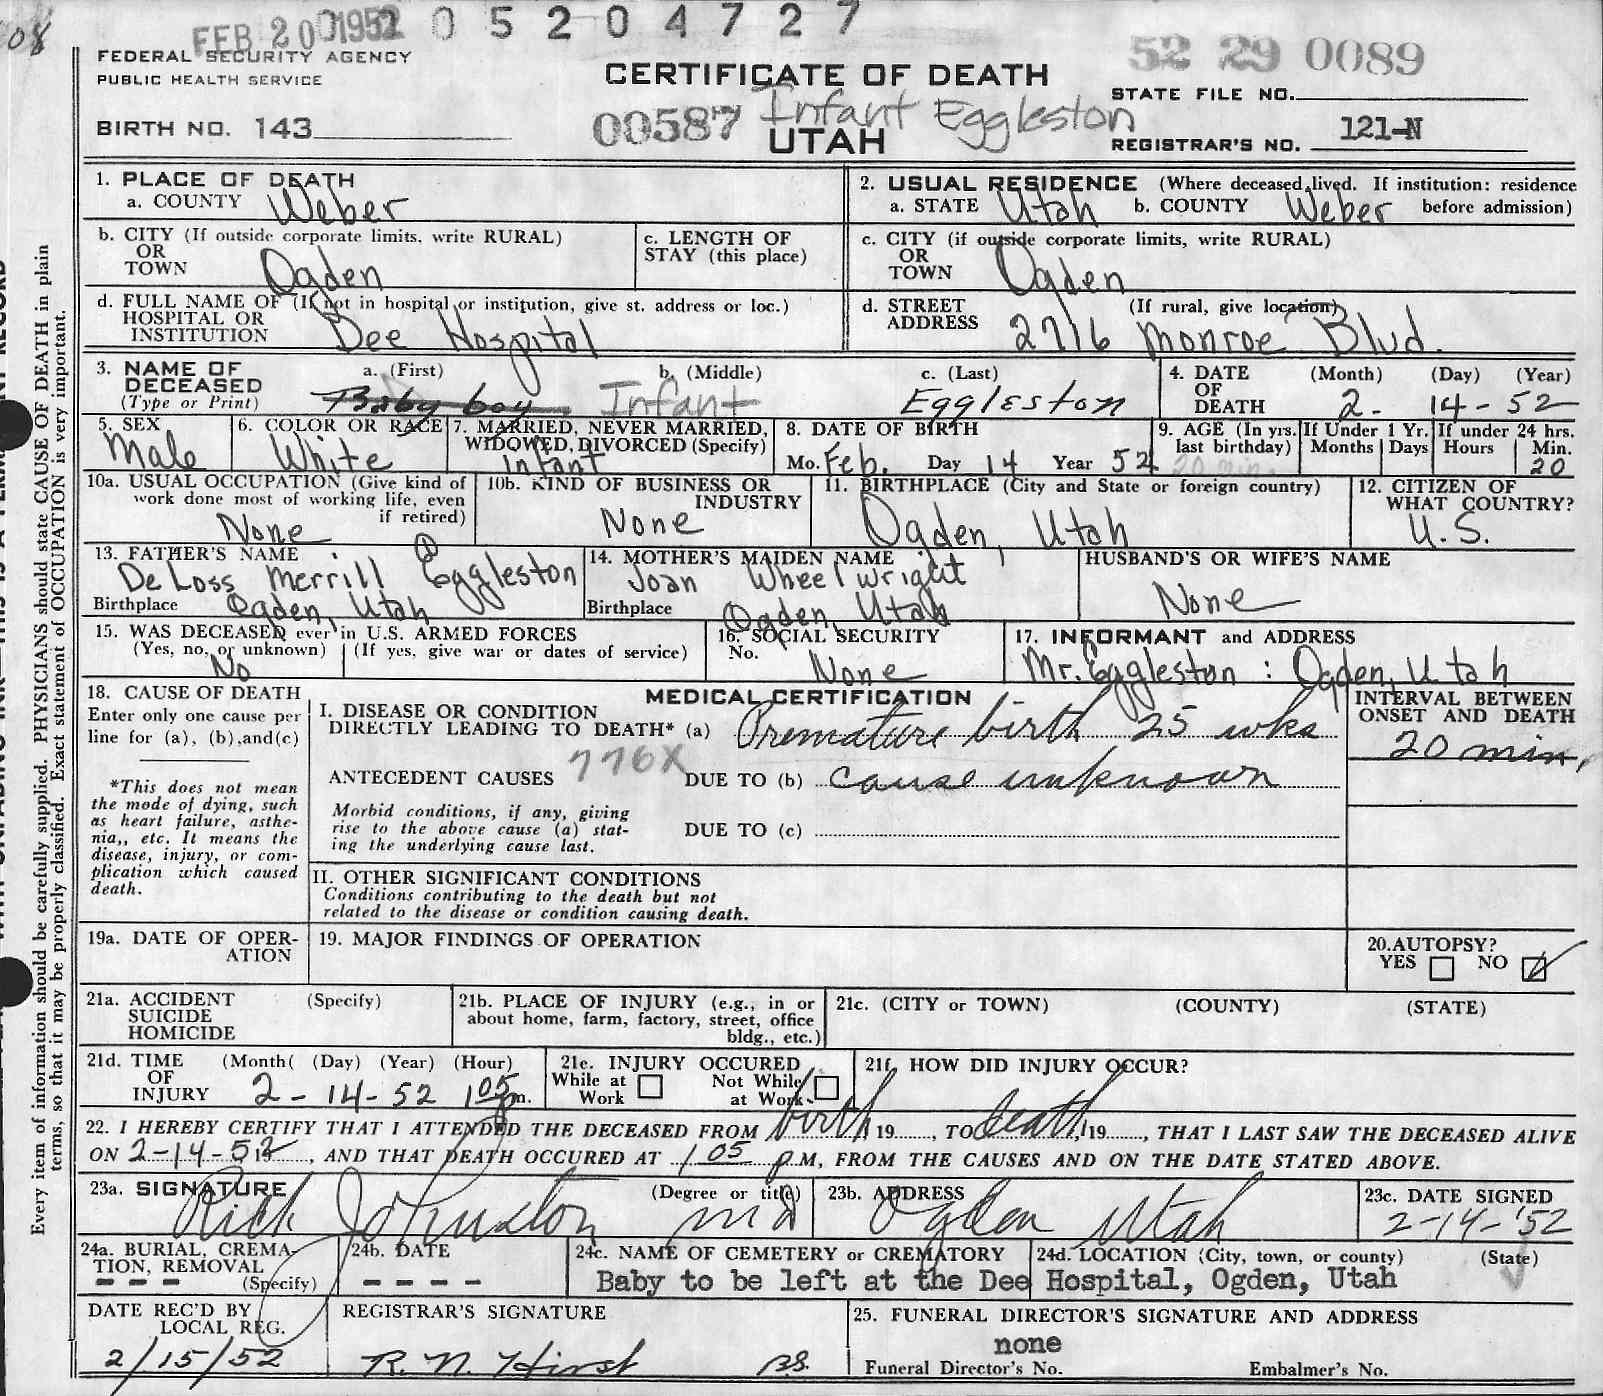 08
FEB 20 1952 0 5 2 0 4 7 2 7
FEDERAL SECURITY AGENCY
PUBLIC HEALTH SERVICE
CERTIFICATE OF DEATH
52 29 0089
STATE FILE NO.
BIRTH NO. 143
00587 Infant Eggleston
UTAH
REGISTRAR'S NO. 121-N
1. PLACE OF DEATH
a. COUNTY Weber
2. USUAL RESIDENCE (Where deceased lived. If institution: residence
a. STATE Utah b. COUNTY Weber before admission)
b. CITY (If outside corporate limits, write RURAL)
OR
TOWN Ogden
c. LENGTH OF
STAY (this place)
c. CITY (if outside corporate limits, write RURAL)
OR
TOWN Ogden
d. FULL NAME OF (If not in hospital or institution, give st. address or loc.)
HOSPITAL OR
INSTITUTION Dee Hospital
d. STREET (If rural, give location)
ADDRESS 2716 Monroe Blvd.
3. NAME OF
DECEASED
(Type or Print)
a. (First) b. (Middle) c. (Last)
Baby boy Infant Eggleston
4. DATE (Month) (Day) (Year)
OF
DEATH 2- 14-52
5. SEX
Male
6. COLOR OR RACE
White
7. MARRIED, NEVER MARRIED,
WIDOWED, DIVORCED (Specify)
Infant
8. DATE OF BIRTH
Mo. Feb. Day 14 Year 52
9. AGE (In yrs.
last birthday)
20 min.
If Under 1 Yr.
Months Days
If under 24 hrs.
Hours Min.
20
10a. USUAL OCCUPATION (Give kind of
work done most of working life, even
if retired)
None
10b. KIND OF BUSINESS OR
INDUSTRY
None
11. BIRTHPLACE (City and State or foreign country)
Ogden, Utah
12. CITIZEN OF
WHAT COUNTRY?
U.S.
13. FATHER'S NAME
De Loss Merrill Eggleston
Birthplace Ogden, Utah
14. MOTHER'S MAIDEN NAME
Joan Wheelwright
Birthplace Ogden, Utah
HUSBAND'S OR WIFE'S NAME
None
15. WAS DECEASED ever in U.S. ARMED FORCES
(Yes, no, or unknown) (If yes, give war or dates of service)
No
16. SOCIAL SECURITY
No. None
17. INFORMANT and ADDRESS
Mr. Eggleston : Ogden, Utah
18. CAUSE OF DEATH
Enter only one cause per
line for (a), (b), and (c)
*This does not mean
the mode of dying, such
as heart failure, asthe-
nia,, etc. It means the
disease, injury, or com-
plication which caused
death.
MEDICAL CERTIFICATION
I. DISEASE OR CONDITION
DIRECTLY LEADING TO DEATH* (a) Premature birth 25 wks
776X
ANTECEDENT CAUSES DUE TO (b) cause unknown
Morbid conditions, if any, giving
rise to the above cause (a) stat-
ing the underlying cause last.
DUE TO (c)
INTERVAL BETWEEN
ONSET AND DEATH
20 min.
II. OTHER SIGNIFICANT CONDITIONS
Conditions contributing to the death but not
related to the disease or condition causing death.
19a. DATE OF OPER-
ATION
19. MAJOR FINDINGS OF OPERATION
20. AUTOPSY?
YES NO
21a. ACCIDENT (Specify)
SUICIDE
HOMICIDE
21b. PLACE OF INJURY (e.g., in or
about home, farm, factory, street, office
bldg., etc.)
21c. (CITY or TOWN) (COUNTY) (STATE)
21d. TIME (Month( (Day) (Year) (Hour)
OF
INJURY 2-14-52 1 05 pm.
21e. INJURY OCCURED
While at Not While
Work at Work
21f. HOW DID INJURY OCCUR?
22. I HEREBY CERTIFY THAT I ATTENDED THE DECEASED FROM birth, 19......, TO death, 19......, THAT I LAST SAW THE DECEASED ALIVE
ON 2-14-52, AND THAT DEATH OCCURED AT 1 05 P M, FROM THE CAUSES AND ON THE DATE STATED ABOVE.
23a. SIGNATURE (Degree or title)
Rick Johnston MD
23b. ADDRESS
Ogden Utah
23c. DATE SIGNED
2-14-'52
24a. BURIAL, CREMA-
TION, REMOVAL
(Specify)
- - -
24b. DATE
- - - -
24c. NAME OF CEMETERY or CREMATORY 24d. LOCATION (City, town, or county) (State)
Baby to be left at the Dee Hospital, Ogden, Utah
DATE REC'D BY
LOCAL REG.
2/15/52
REGISTRAR'S SIGNATURE
R. N. Hirst B.S.
25. FUNERAL DIRECTOR'S SIGNATURE AND ADDRESS
none
Funeral Director's No. Embalmer's No.
Every item of information should be carefully supplied. PHYSICIANS should state CAUSE OF DEATH in plain
terms, so that it may be properly classified. Exact statement of OCCUPATION is very important.